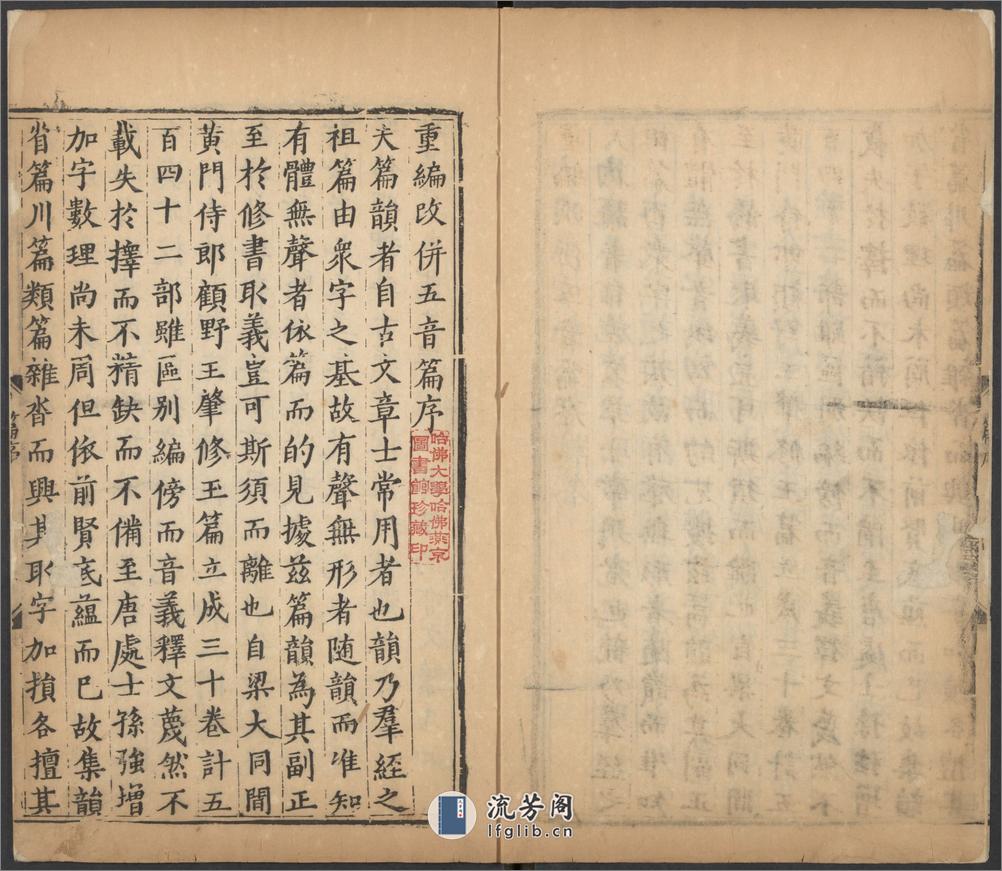 重編改併五音篇序
夫篇韻者自古文章士常用者也韻乃羣經之
祖篇由衆字之基故有聲無形者随韻而准知
有體無聲者依篇而的見據兹篇韻為其副正
至於修書取義豈可斯須而離也自梁大同間
黄門侍郎顧野王肇修玉篇立成三十卷計五
百四十二部雖區别編傍而音義釋文蔑然不
載失於擇而不精缺而不備至唐處士孫強增
加字數理尚未周但依前賢底藴而已故集韻
省篇川篇類篇雜沓而興其取字加損各擅其
篇序
哈佛大學哈佛燕京
圖書館珍藏印
流芳阁
lfglib.cn